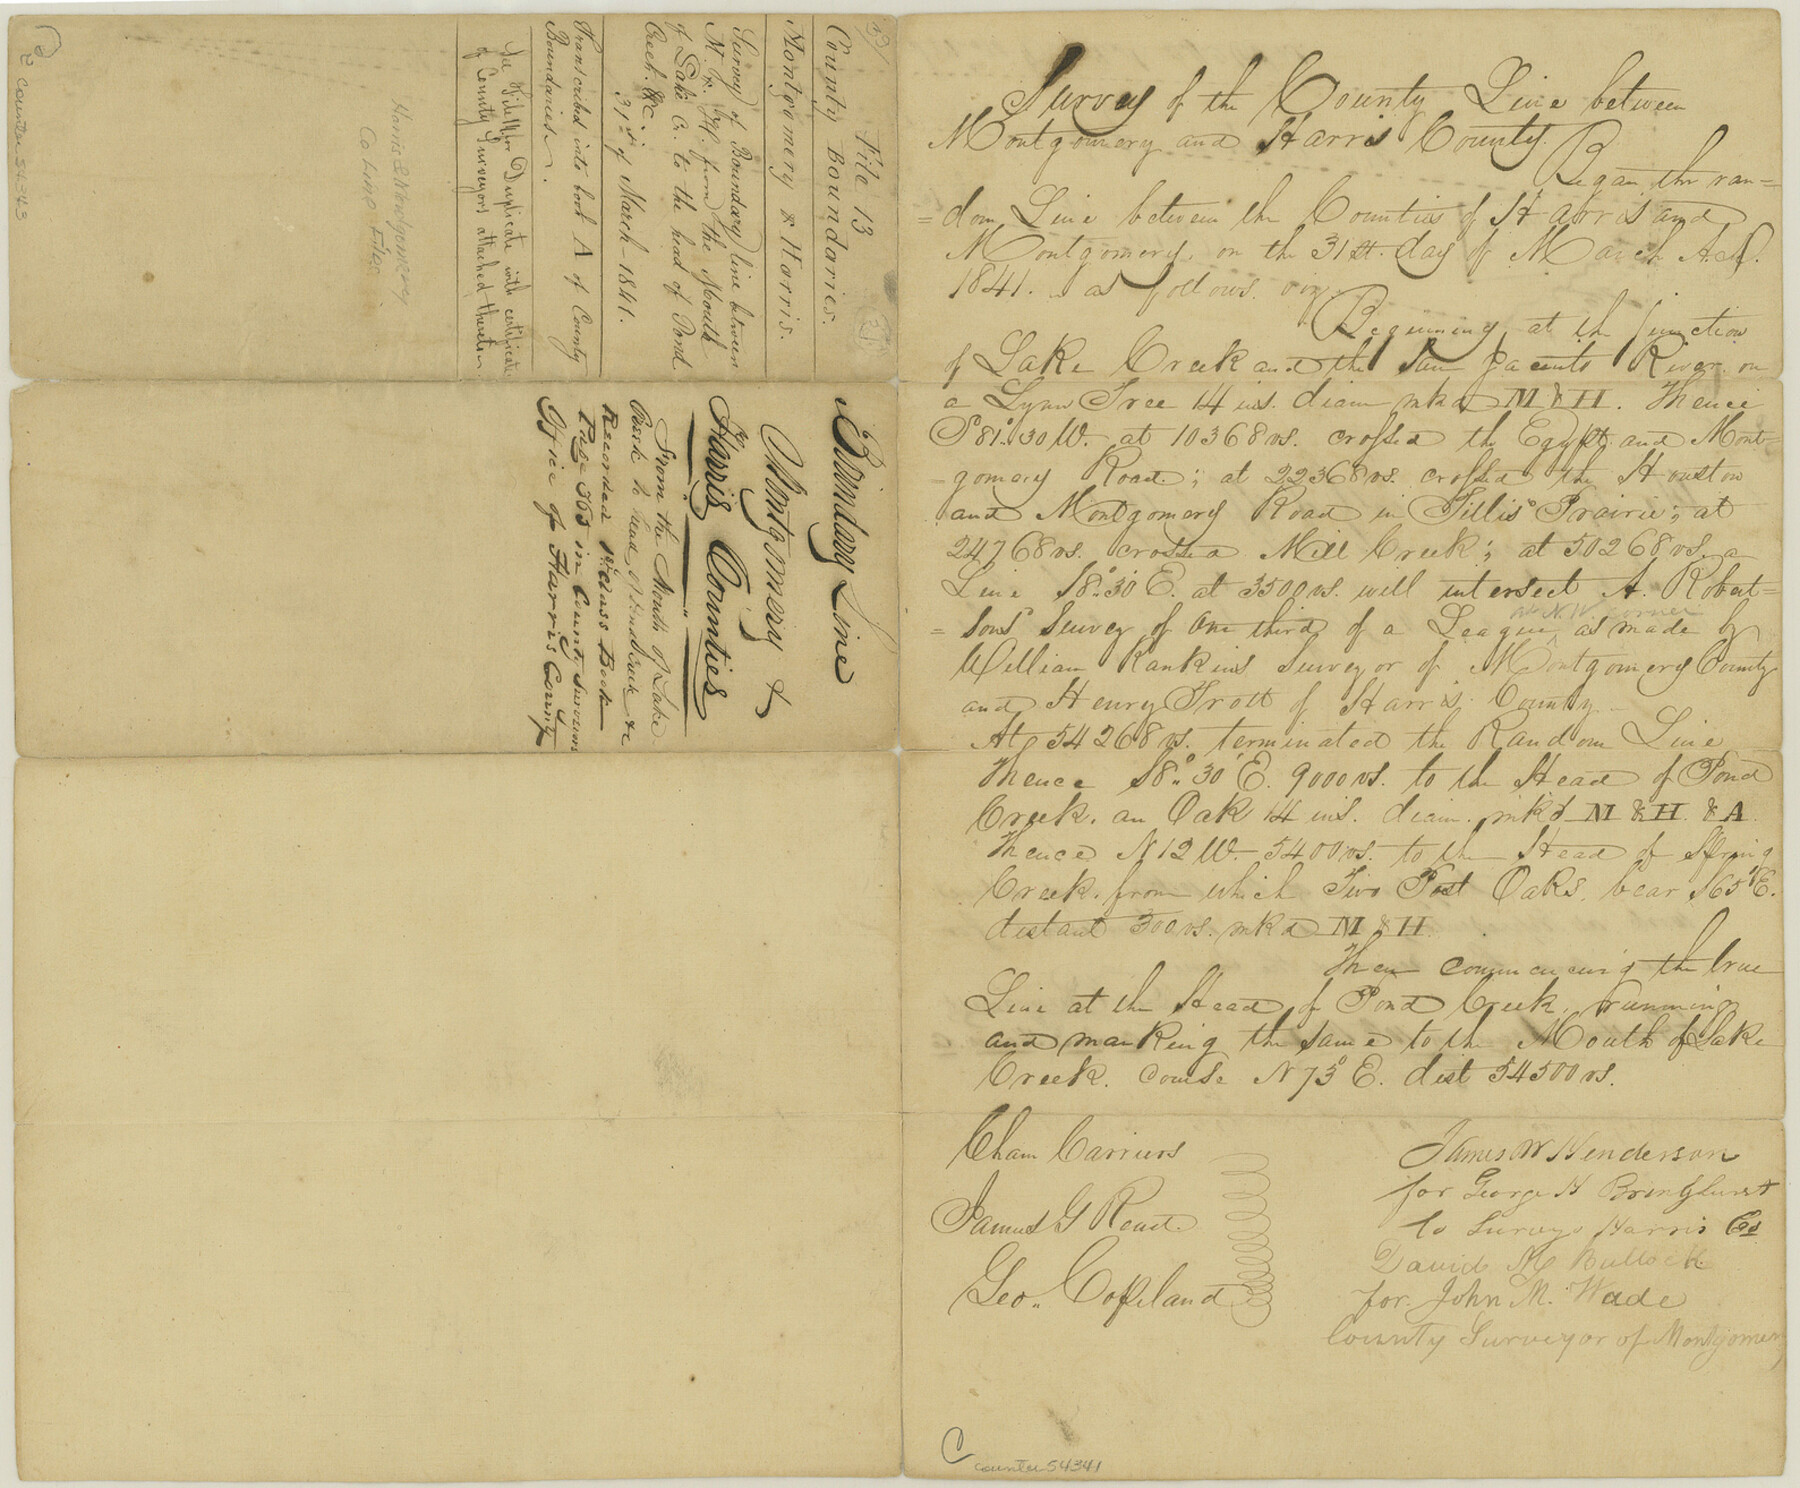 Survey of the County Line between
Montgomery and Harris County.
Began the ran=
=dom Line between the Counties of Harris and
Montgomery on the 31st. day of March A.D.
1841. as follows. viz.
Beginning at the junction
of Lake Creek and the San Jacinto River on
a Lynn Tree 14 ins. diam mkd M & H. Thence
S 81° 30 W. at 10368 vs. crossed the Egypt and Mont=
=gomery Road; at 22368 vs. crossed the Houston
and Montgomery Road in Tillis' Prairie; at
24768 vs. crossed Mill Creek; at 50268 vs. a
Line S 8° 30' E. at 3500 vs. will intersect A. Robert=
at N.W. corner
=sons Survey of One third of a League, as made by
William Rankins Surveyor of Montgomery County
and Henry Trott of Harris County.
At 54268 vs. terminated the Random Line
Thence S 8° 30' E. 9000 vs. to the Head of Pond
Creek. an Oak 14 ins. diam. mkd M & H. & A.
Thence N 12 W. 5400 vs. to the Head of Spring
Creek. from which Two Post Oaks. bear S 65° E.
distant 300 vs. mkd M & H.
Then commencing the true
Line at the Head of Pond Creek, running
and marking the same to the Mouth of Lake
Creek. Course N 75° E. dist 54500 vs.
Chain Carriers
James G Read.
Geo. Copeland
James W Henderson
for George H Bringhurst
Co Survey. Harris Co
David H Bullock
for John M. Wade
County Surveyor of Montgomery
C
counter 54341
File 13
County Boundaries.
Montgomery & Harris.
Survey of Boundary line between
M. & H. from the Mouth
of Lake Cr. to the head of Pond
Creek. &c.
31st of March - 1841.
Transcribed into book A of County
Boundaries.
See File for Duplicate with certificate
of County Surveyors attached thereto
Harris & Montgomery
Co Line Files
counter 54343
Boundary Line
Montgomery &
Harris Counties
From the Mouth of Lake
Creek to head of Pond Creek &c
Recorded 1st Class Book
Page 365 in County Surveyors
Office of Harris County